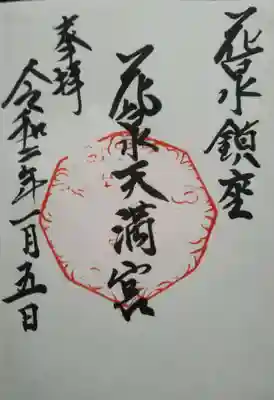 花水鎮座
花泉天満宮
奉拝
令和二年一月五日